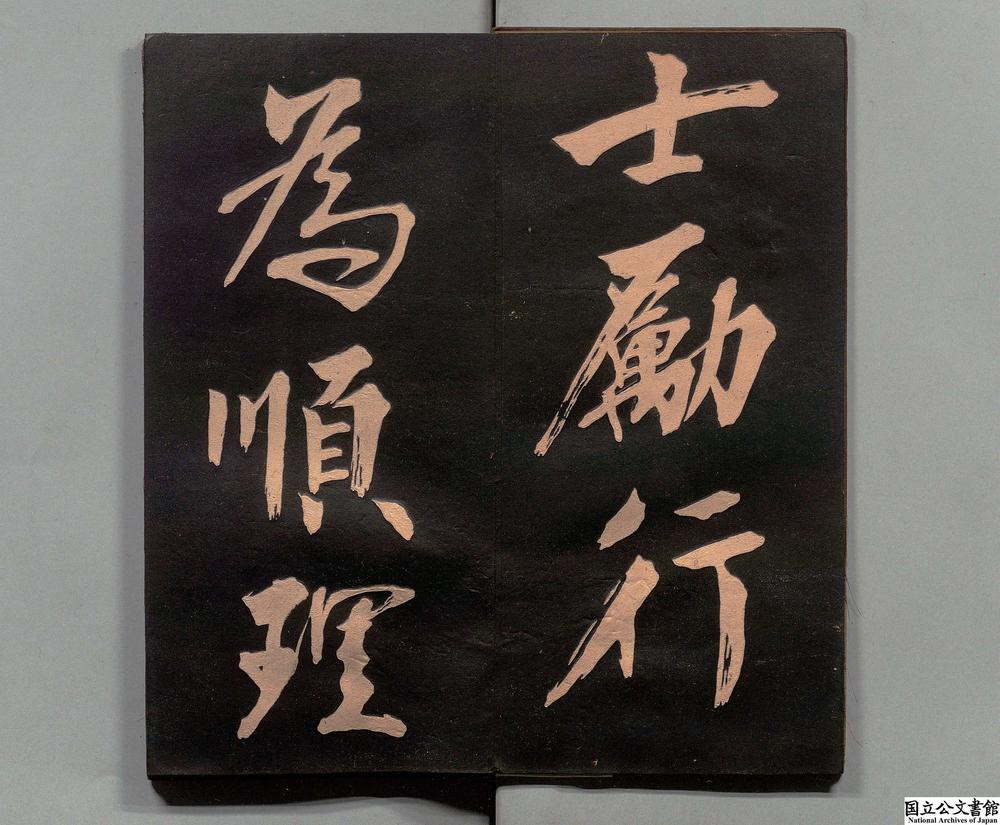 士勵行
為順理
国立公文書館
National Archives of Japan